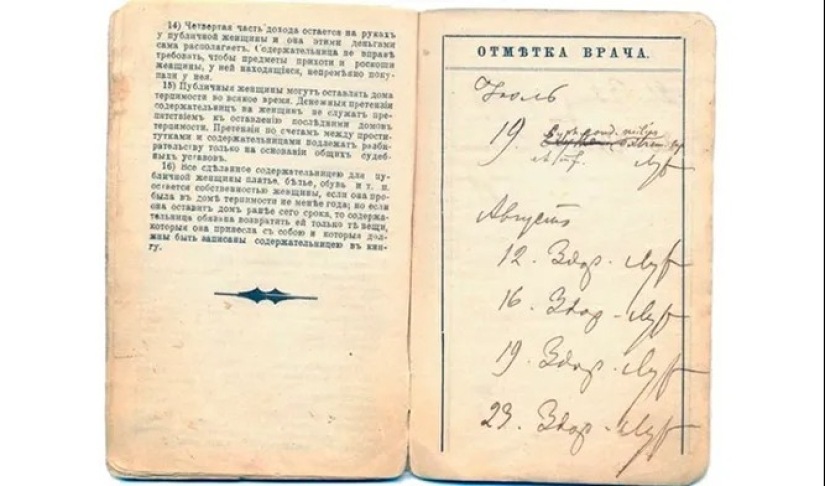 14) Четвертая часть дохода остается на рукахъ
у публичной женщины и она этими деньгами
сама располагаетъ. Содержательница не вправѣ
требовать, чтобы предметы прихоти и роскоши
женщины, у ней находящіяся, непремѣнно поку-
пали у нея.
15) Публичныя женщины могутъ оставлять дома
терпимости во всякое время. Денежныя претензіи
содержательницъ на женщинъ не служатъ пре-
пятствіемъ къ оставленію послѣдними домовъ
терпимости. Претензіи по счетамъ между прости-
тутками и содержательницами подлежатъ разби-
рательству только на основаніи общихъ судеб-
ныхъ уставовъ.
16) Все сдѣланное содержательницею для пу-
бличной женщины платье, бѣлье, обувь и т. п.
остается собственностью женщины, если она про-
была въ домѣ терпимости не менѣе года; но если
она оставитъ домъ ранѣе сего срока, то содержа-
тельница обязана возвратить ей только тѣ вещи,
которыя она привезла съ собою и которыя дол-
жны быть записаны содержательницею въ кни-
гу.
ОТМѢТКА ВРАЧА.
Іюль
19.
Августъ
12. Здор.
16. Здор.
19. Здор.
23. Здор.